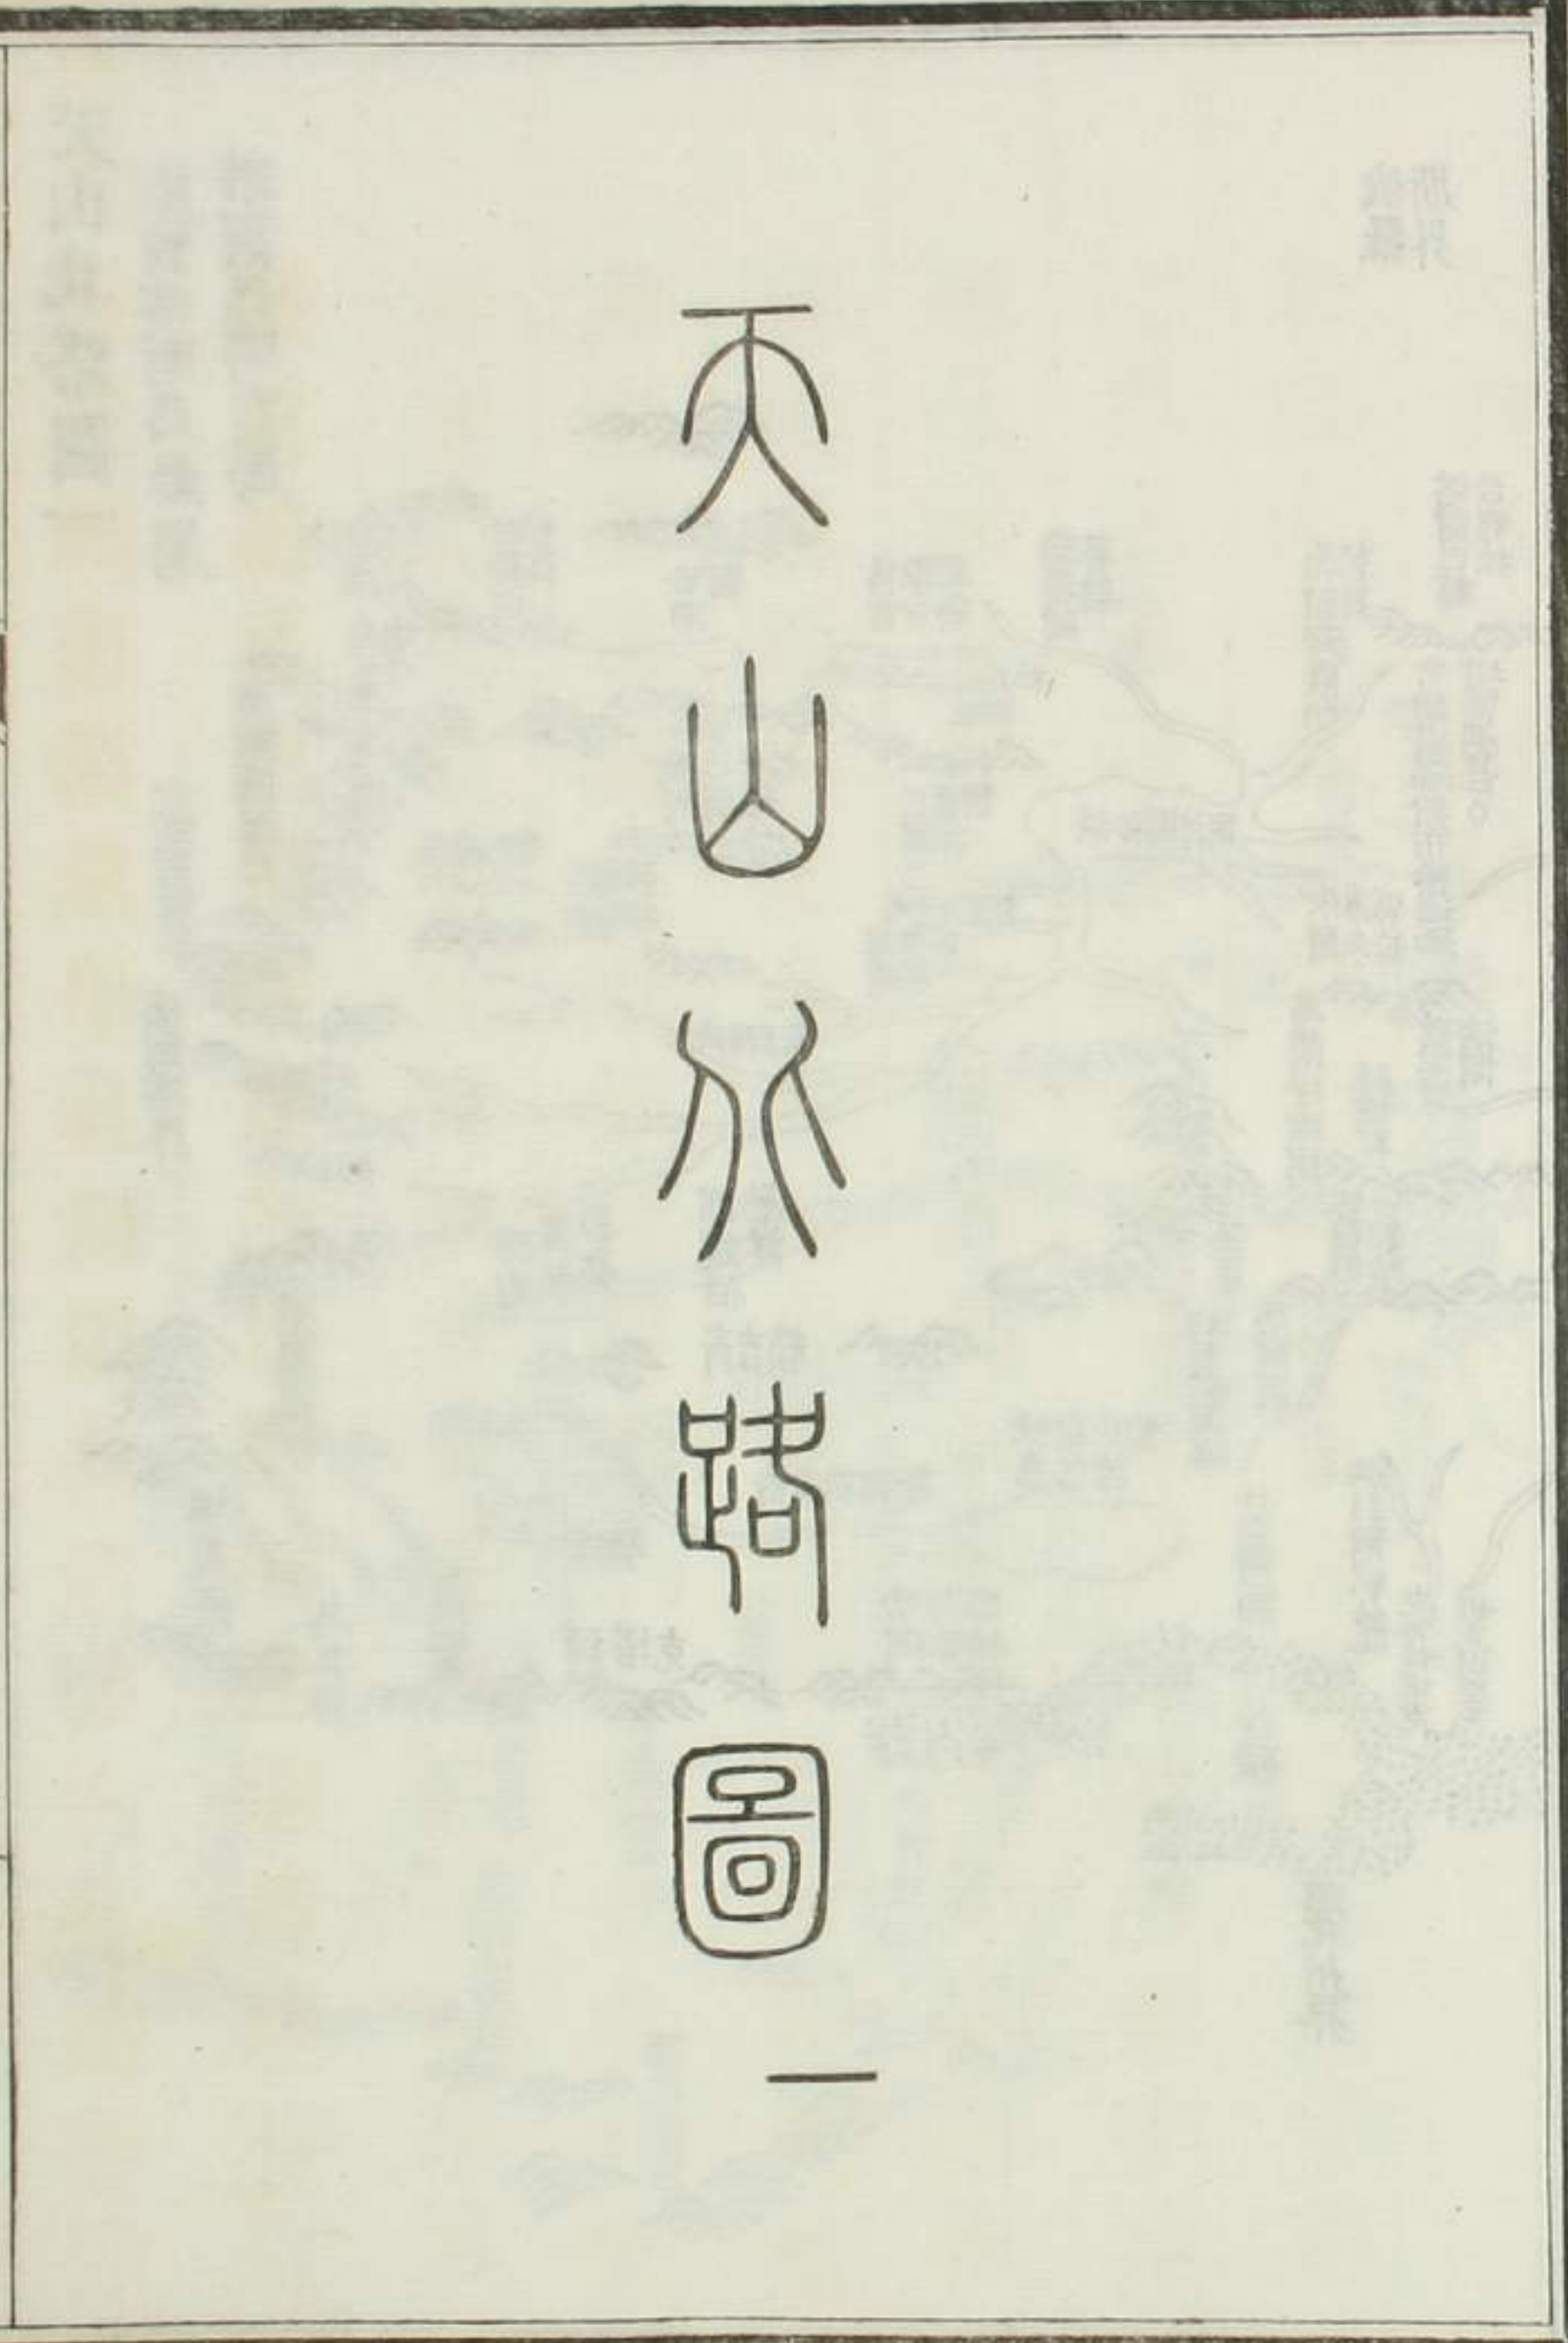 天山北路圖一